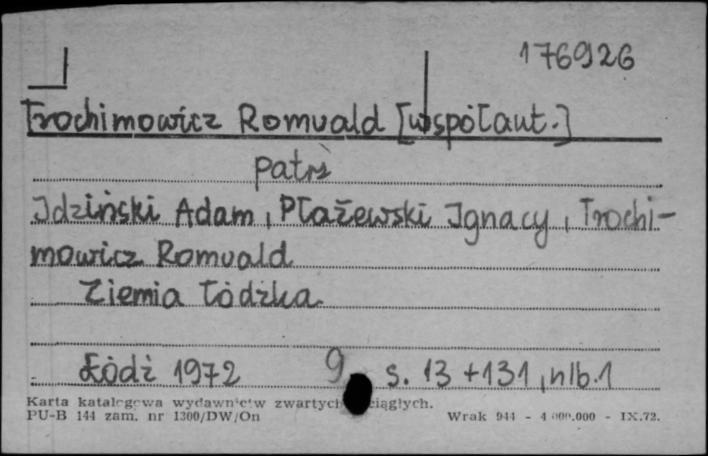 176926
Trochimowicz Romuald [współaut.]
patrz
Idziński Adam, Płażewski Ignacy, Trochi-
mowicz Romuald
Ziemia łódzka
Łódź 1972 s. 13 + 131, nlb. 1
Karta katalogowa wydawnictw zwartych ciągłych.
PU-B 144 zam. nr 1300/DW/On Wrak 944 - 4 000.000 - IX.72.